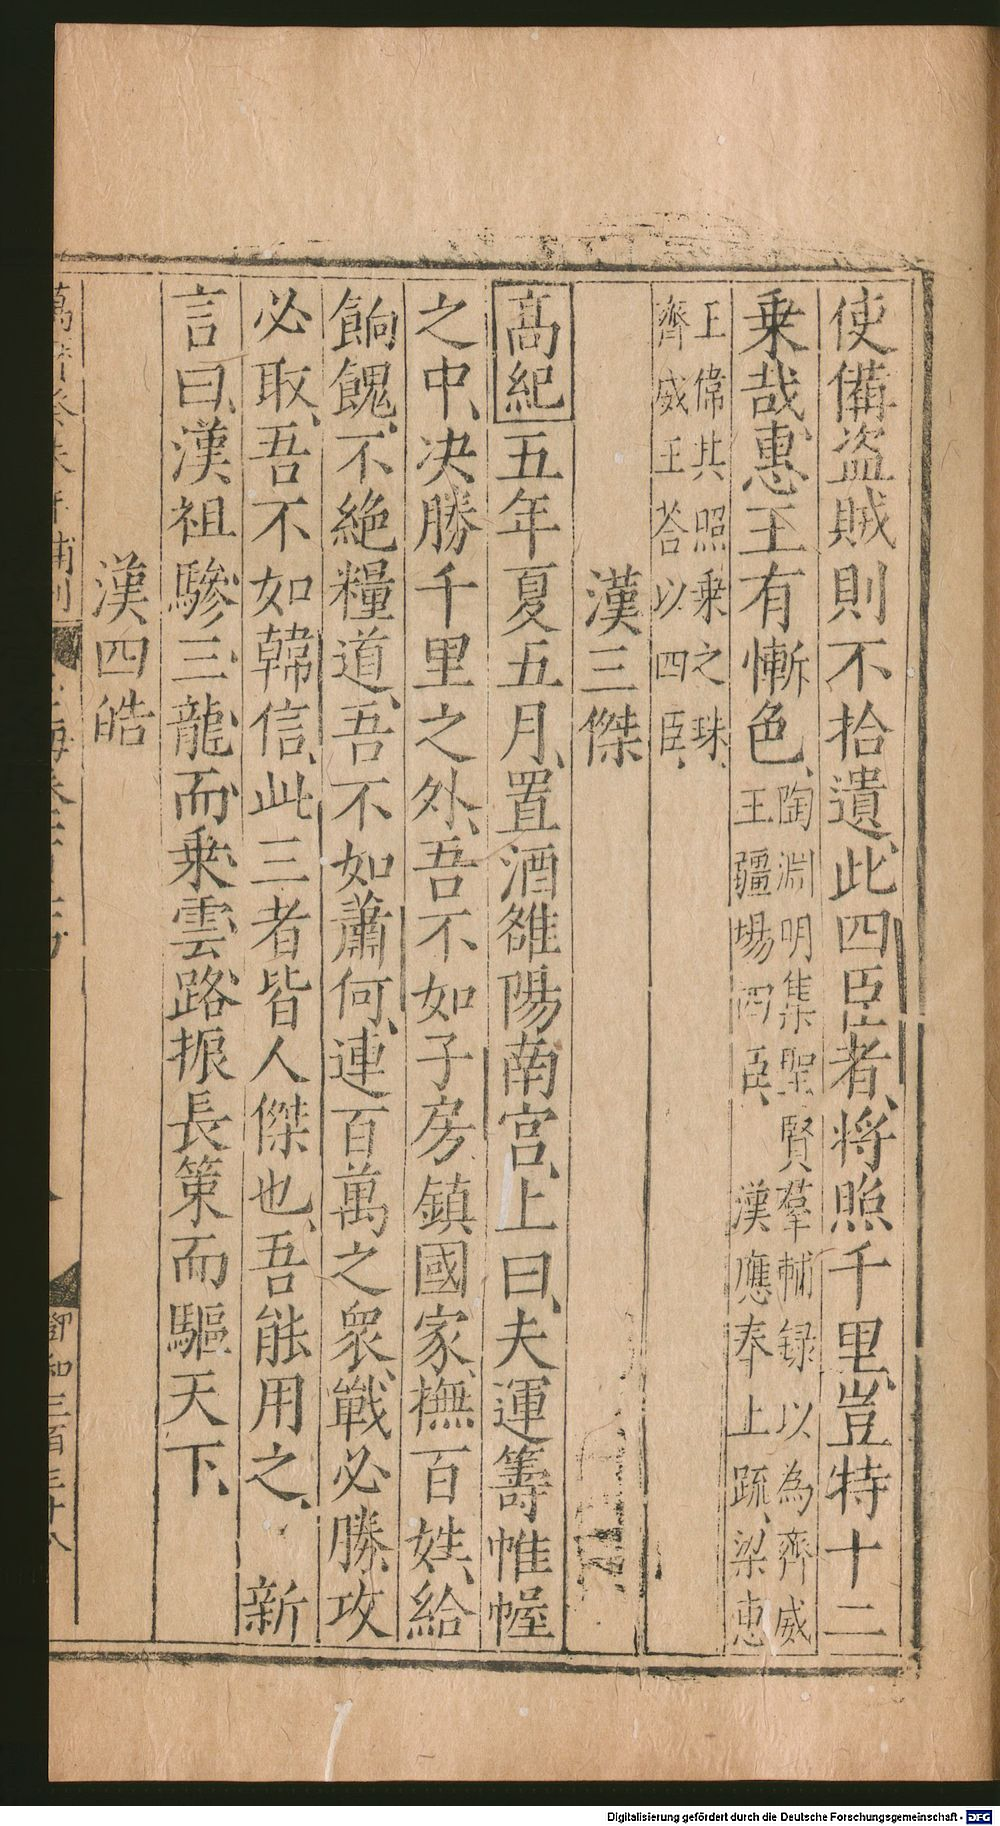 使備盗賊則不拾遺此四臣者、將照千里豈特十二
乗哉惠王有慚色、陶淵明集聖賢羣輔録以為齊威
王疆場四臣、漢應奉上疏、梁惠
王偉其照乗之珠、
齊威王荅以四臣、
漢三傑
髙紀五年夏五月、置酒雒陽南宫、上曰、夫運籌帷幄
之中、决勝千里之外、吾不如子房、鎮國家、撫百姓、給
餉餽、不絶糧道、吾不如蕭何、連百萬之衆、戰必勝、攻
必取、吾不如韓信、此三者皆人傑也、吾能用之、新
言曰、漢祖驂三龍而乗雲路、振長策而驅天下、
漢四皓
Digitalisierung gefördert durch die Deutsche Forschungsgemeinschaft - DFG